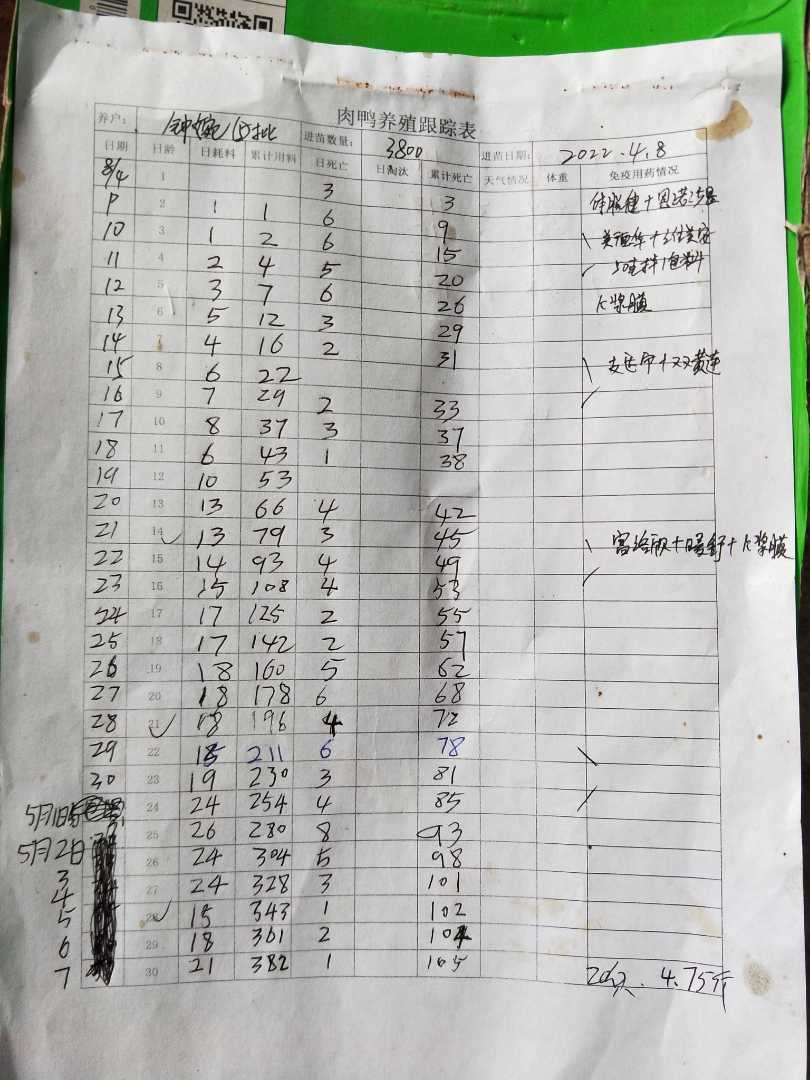 肉鸭养殖跟踪表
养户： 进苗数量： 3800 进苗日期： 2022.4.8
日期 日龄 日耗料 累计用料 日死亡 日淘汰 累计死亡 天气情况 体重 免疫用药情况
8/4 1 3 3
9 2 1 1 6 9
10 3 1 2 6 15
11 4 2 4 5 20
12 5 3 7 6 26 浆膜
13 6 5 12 3 29
14 7 4 16 2 31
15 8 6 22 双黄连
16 9 7 29 2 33
17 10 8 37 3 37
18 11 6 43 1 38
19 12 10 53
20 13 13 66 4 42
21 14 ✓ 13 79 3 45 浆膜
22 15 14 93 4 49
23 16 15 108 4 53
24 17 17 125 2 55
25 18 17 142 2 57
26 19 18 160 5 62
27 20 18 178 6 68
28 21 ✓ 18 196 4 72
29 22 15 211 6 78
30 23 19 230 3 81
5月1日 24 24 254 4 85
5月2日 25 26 280 8 93
3 26 24 304 5 98
4 27 24 328 3 101
5 28 ✓ 15 343 1 102
6 29 18 361 2 104
7 30 21 382 1 105 4.75斤